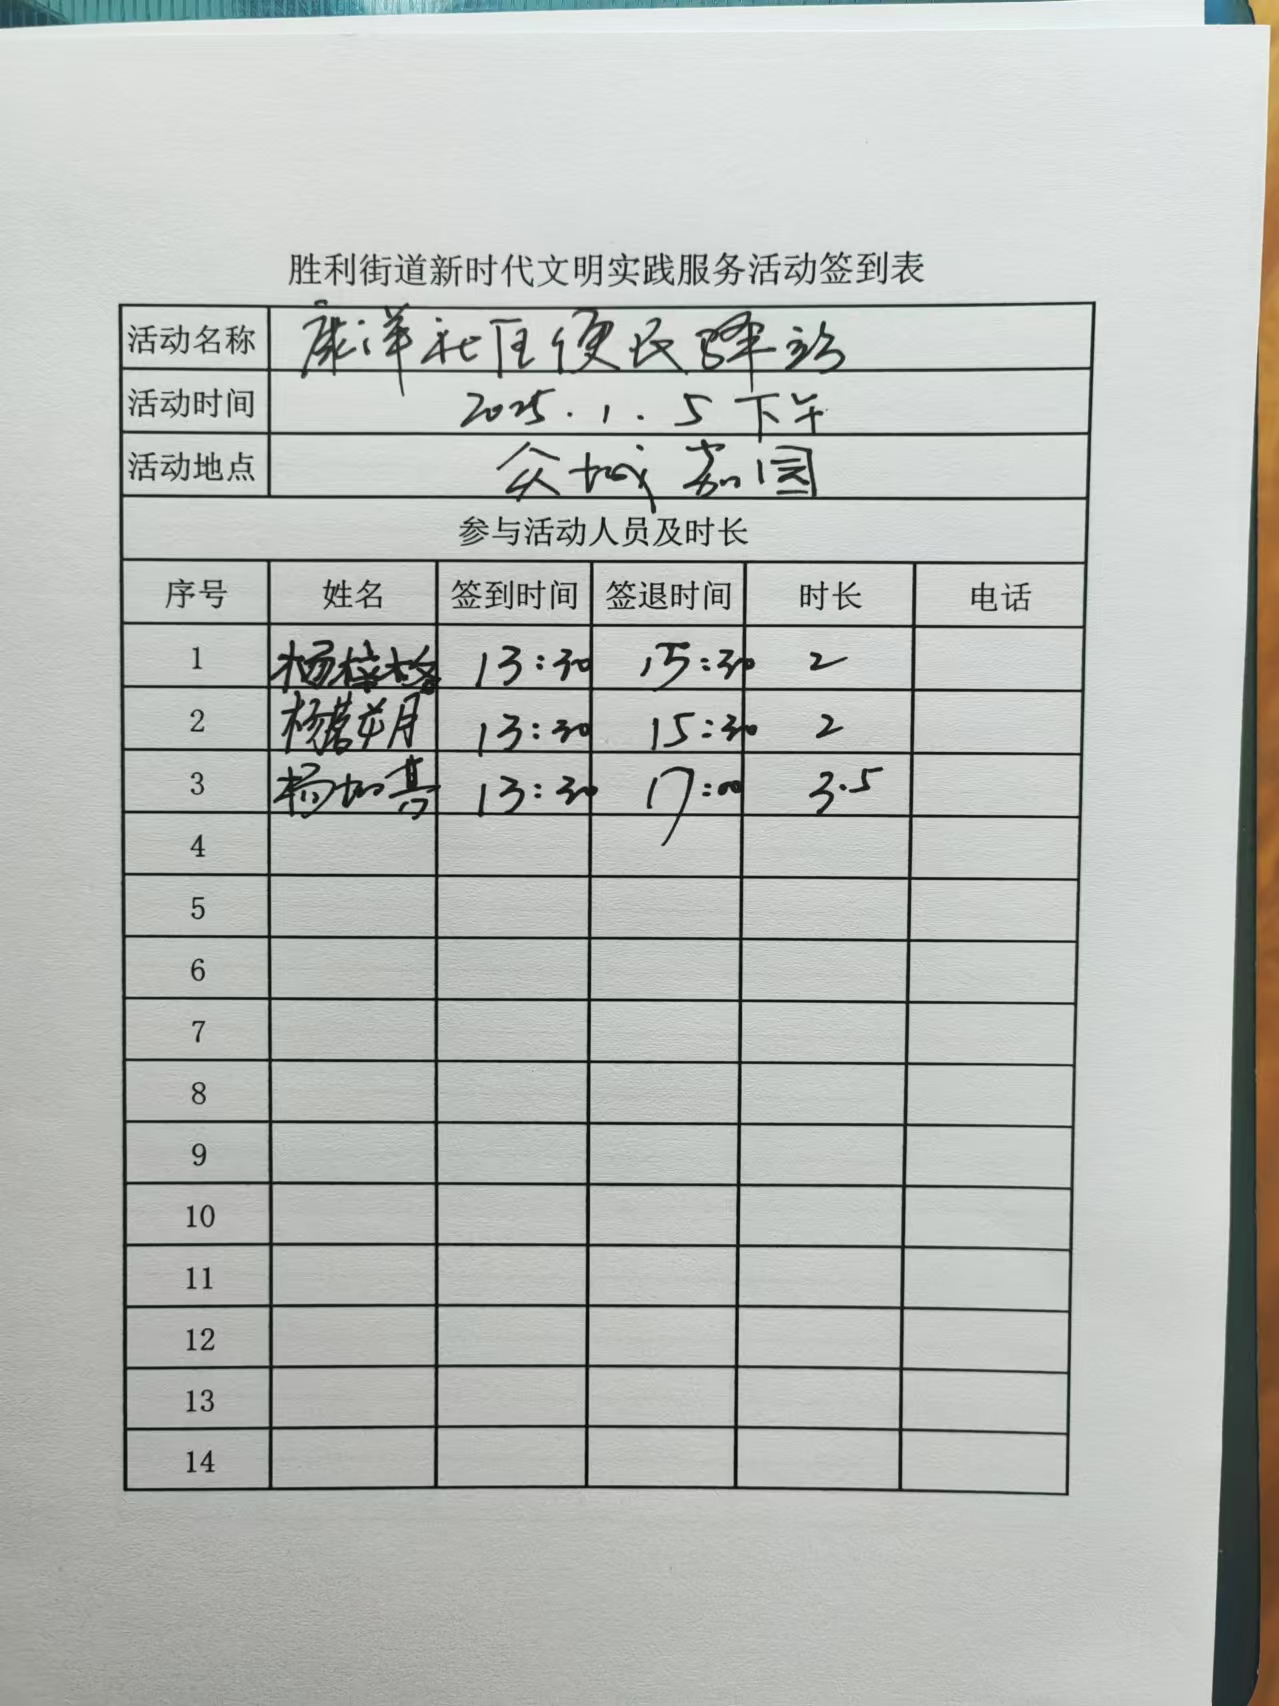 胜利街道新时代文明实践服务活动签到表
活动名称 康洋社区便民驿站
活动时间 2025.1.5 下午
活动地点 众城嘉园
参与活动人员及时长
序号 姓名 签到时间 签退时间 时长 电话
1 杨 13:30 15:30 2
2 杨 13:30 15:30 2
3 杨如 13:30 17:00 3.5
4
5
6
7
8
9
10
11
12
13
14